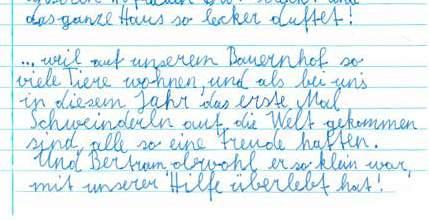 das ganze Haus so lecker duftet!
... weil auf unserem Bauernhof so
viele Tiere wohnen, und als bei uns
in diesem Jahr das erste Mal
Schweinderln auf die Welt gekommen
sind, alle so eine Freude hatten.
Und Bertram obwohl er so klein war,
mit unserer Hilfe überlebt hat!